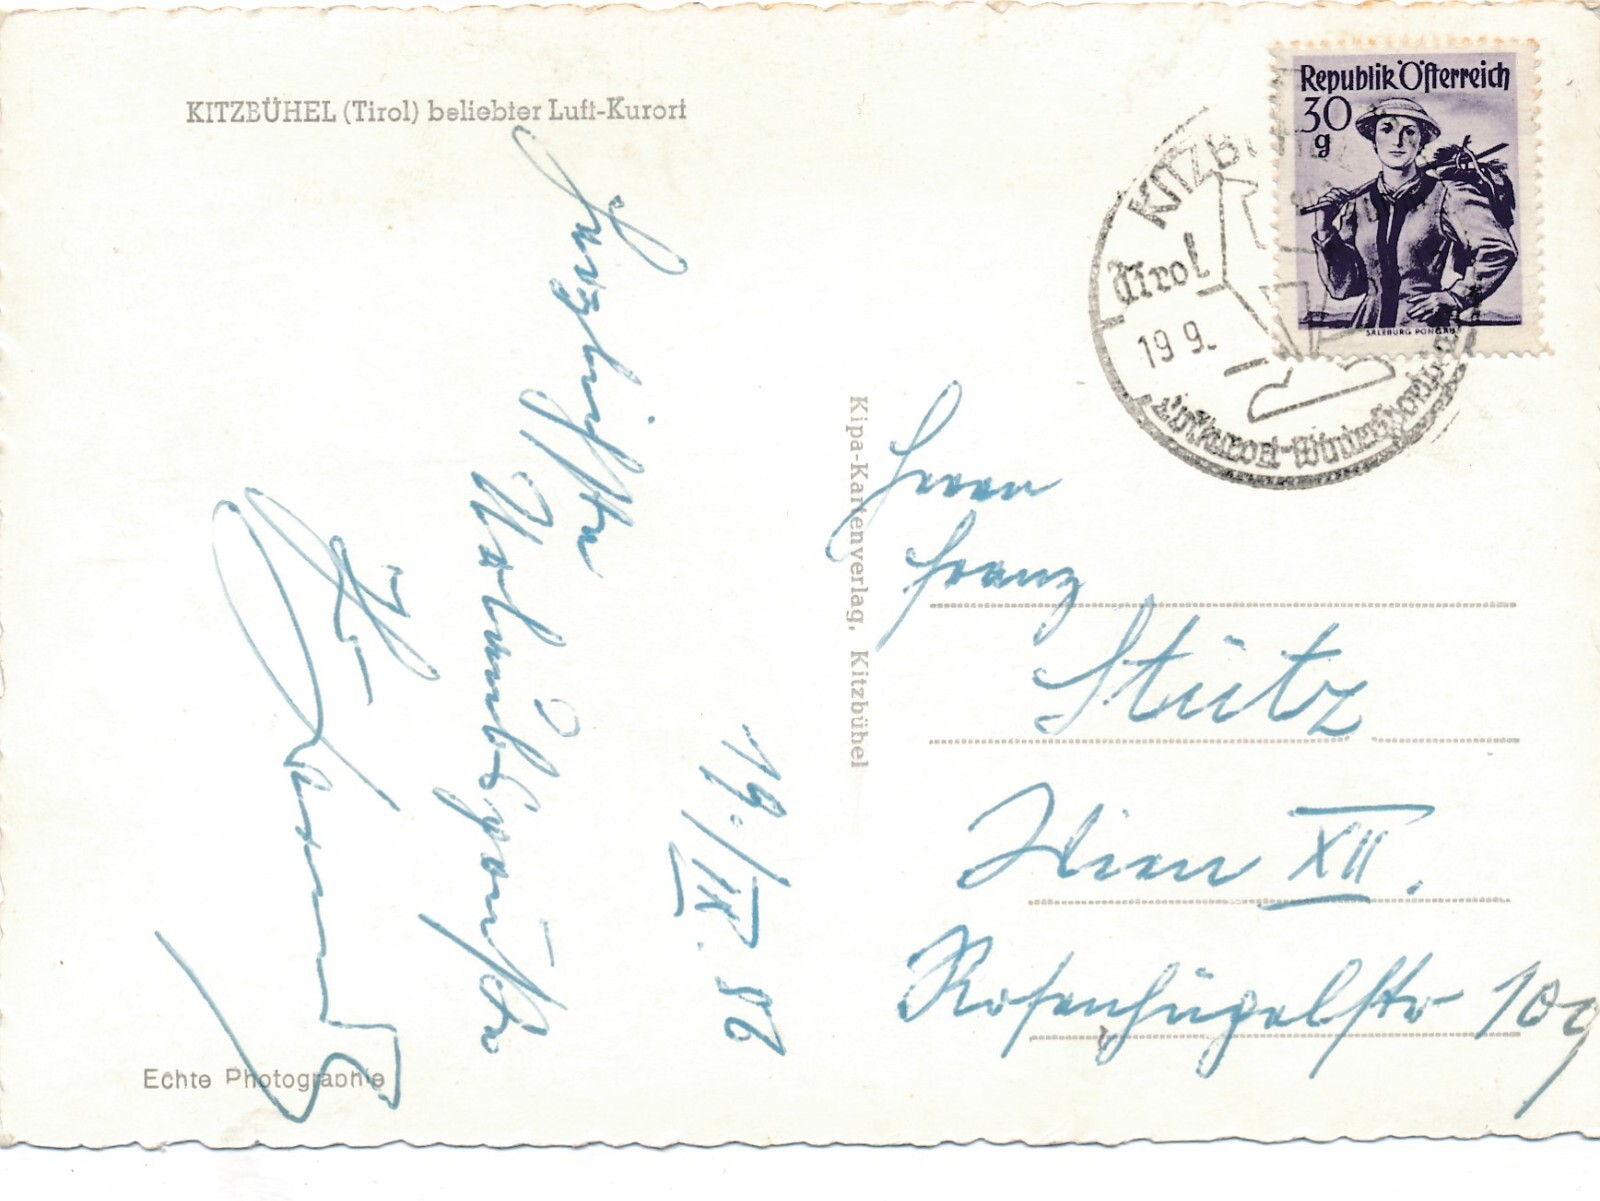 KITZBÜHEL (Tirol) beliebter Luft-Kurort
Republik Österreich
30
g
SALZBURG PONGAU
KITZBÜHEL
Tirol
19 9.
Luftkurort-Wintersportplatz
19./IX. 56
Herzlichste
Urlaubsgrüße
Kipa-Kartenverlag, Kitzbühel
Herrn
Franz
Stütz
Wien XII.
Rosenhügelstr 109
Echte Photographie